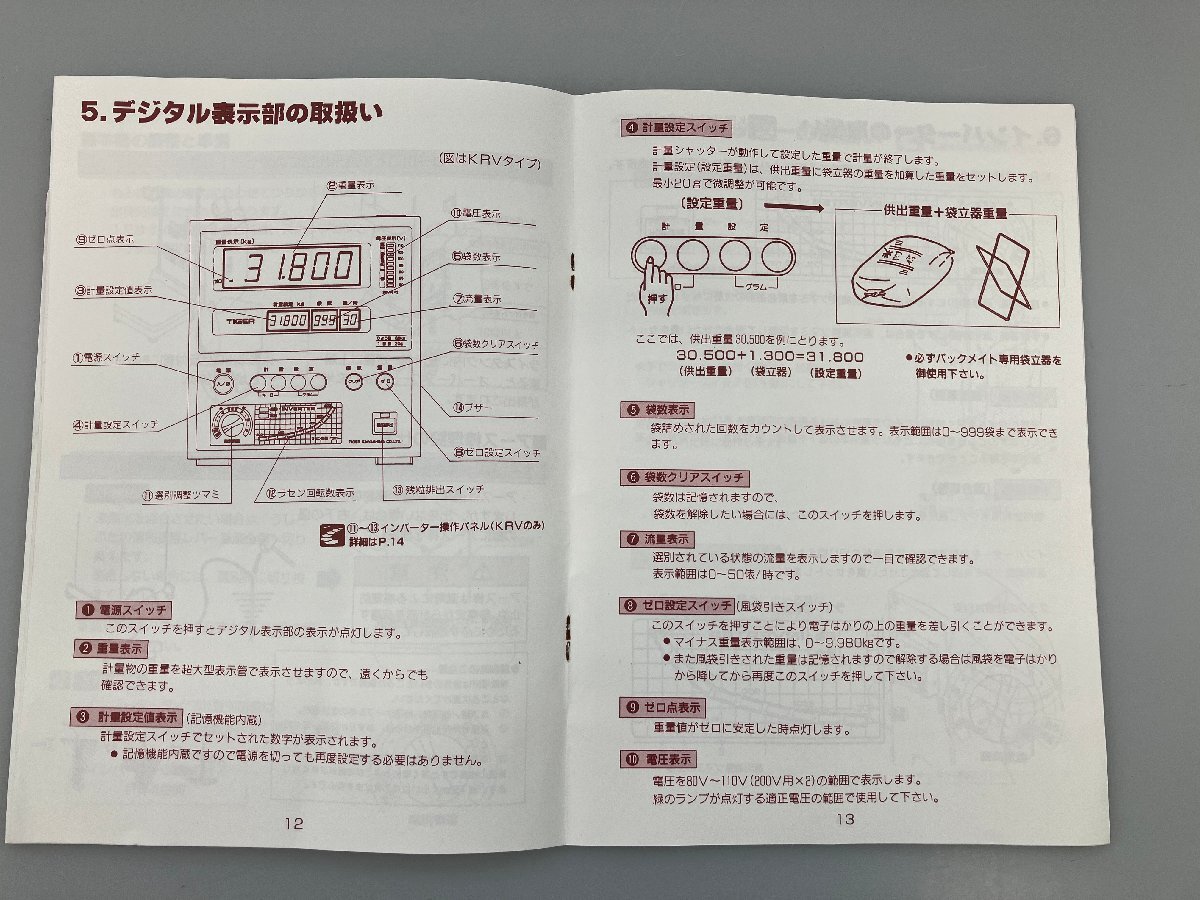 5.デジタル表示部の取扱い
(図はKRVタイプ)
②重量表示
⑩電圧表示
⑨ゼロ点表示
⑤袋数表示
③計量設定値表示
⑦流量表示
①電源スイッチ
⑥袋数クリアスイッチ
④計量設定スイッチ
⑭ブザー
⑧ゼロ設定スイッチ
⑪選別調整ツマミ
⑫ラセン回転数表示
⑬残粒排出スイッチ
重量表示(kg)
31.800
計量設定 kg
31.800
999
30
TIGER
計量設定
⑪〜⑬インバーター操作パネル(KRVのみ)
詳細はP.14
❶ 電源スイッチ
このスイッチを押すとデジタル表示部の表示が点灯します。
❷ 重量表示
計量物の重量を超大型表示管で表示させますので、遠くからでも
確認できます。
❸ 計量設定値表示 (記憶機能内蔵)
計量設定スイッチでセットされた数字が表示されます。
● 記憶機能内蔵ですので電源を切っても再度設定する必要はありません。
12
❹ 計量設定スイッチ
計量シャッターが動作して設定した重量で計量が終了します。
計量設定(設定重量)は、供出重量に袋立器の重量を加算した重量をセットします。
最小20gで微調整が可能です。
(設定重量)
供出重量+袋立器重量
計量設定
押す
グラム
ここでは、供出重量30.500を例にとります。
30.500+1.300=31.800
(供出重量) (袋立器) (設定重量)
●必ずパックメイト専用袋立器を
御使用下さい。
❺ 袋数表示
袋詰めされた回数をカウントして表示させます。表示範囲は0〜999袋まで表示でき
ます。
❻ 袋数クリアスイッチ
袋数は記憶されますので、
袋数を解除したい場合には、このスイッチを押します。
❼ 流量表示
選別されている状態の流量を表示しますので一目で確認できます。
表示範囲は0〜50俵/時です。
❽ ゼロ設定スイッチ (風袋引きスイッチ)
このスイッチを押すことにより電子はかりの上の重量を差し引くことができます。
● マイナス重量表示範囲は、0〜9.980kgです。
● また風袋引きされた重量は記憶されますので解除する場合は風袋を電子はかり
から降してから再度このスイッチを押して下さい。
❾ ゼロ点表示
重量値がゼロに安定した時点灯します。
❿ 電圧表示
電圧を80V〜110V(200V用×2)の範囲で表示します。
緑のランプが点灯する適正電圧の範囲で使用して下さい。
13